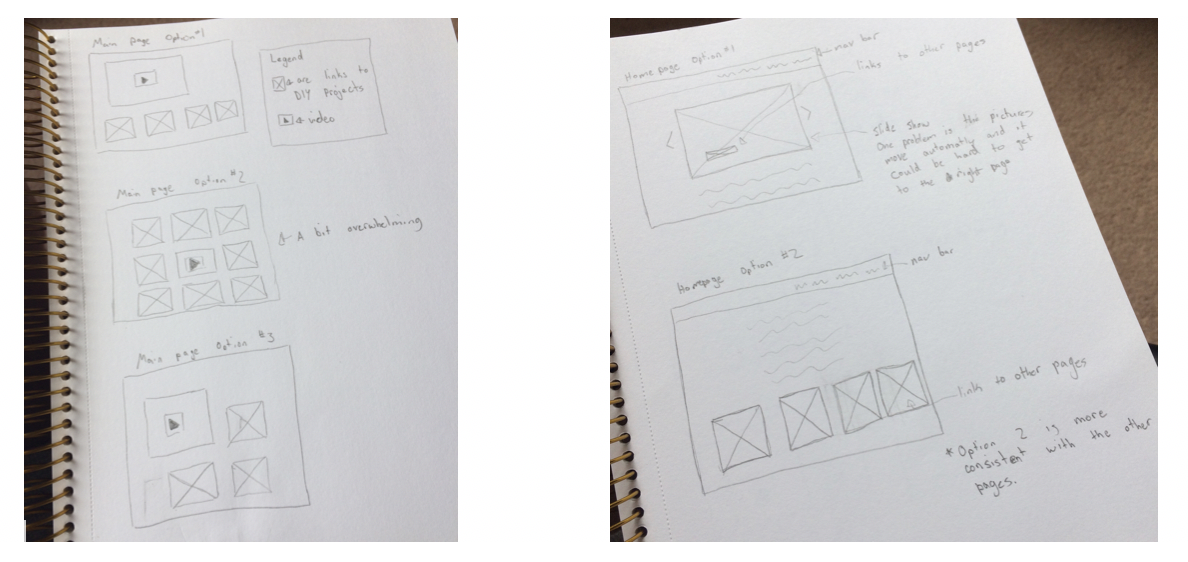 Main page Option #1
Legend
are links to
DIY Projects
video
Main page Option #2
A bit overwhelming
Main page Option #3
Homepage Option #1
nav bar
links to other pages
slide show
One problem is that pictures
move automatly and it
could be hard to get
to the right page
Homepage Option #2
nav bar
link to other pages
* Option 2 is more
consistent with the other
pages.